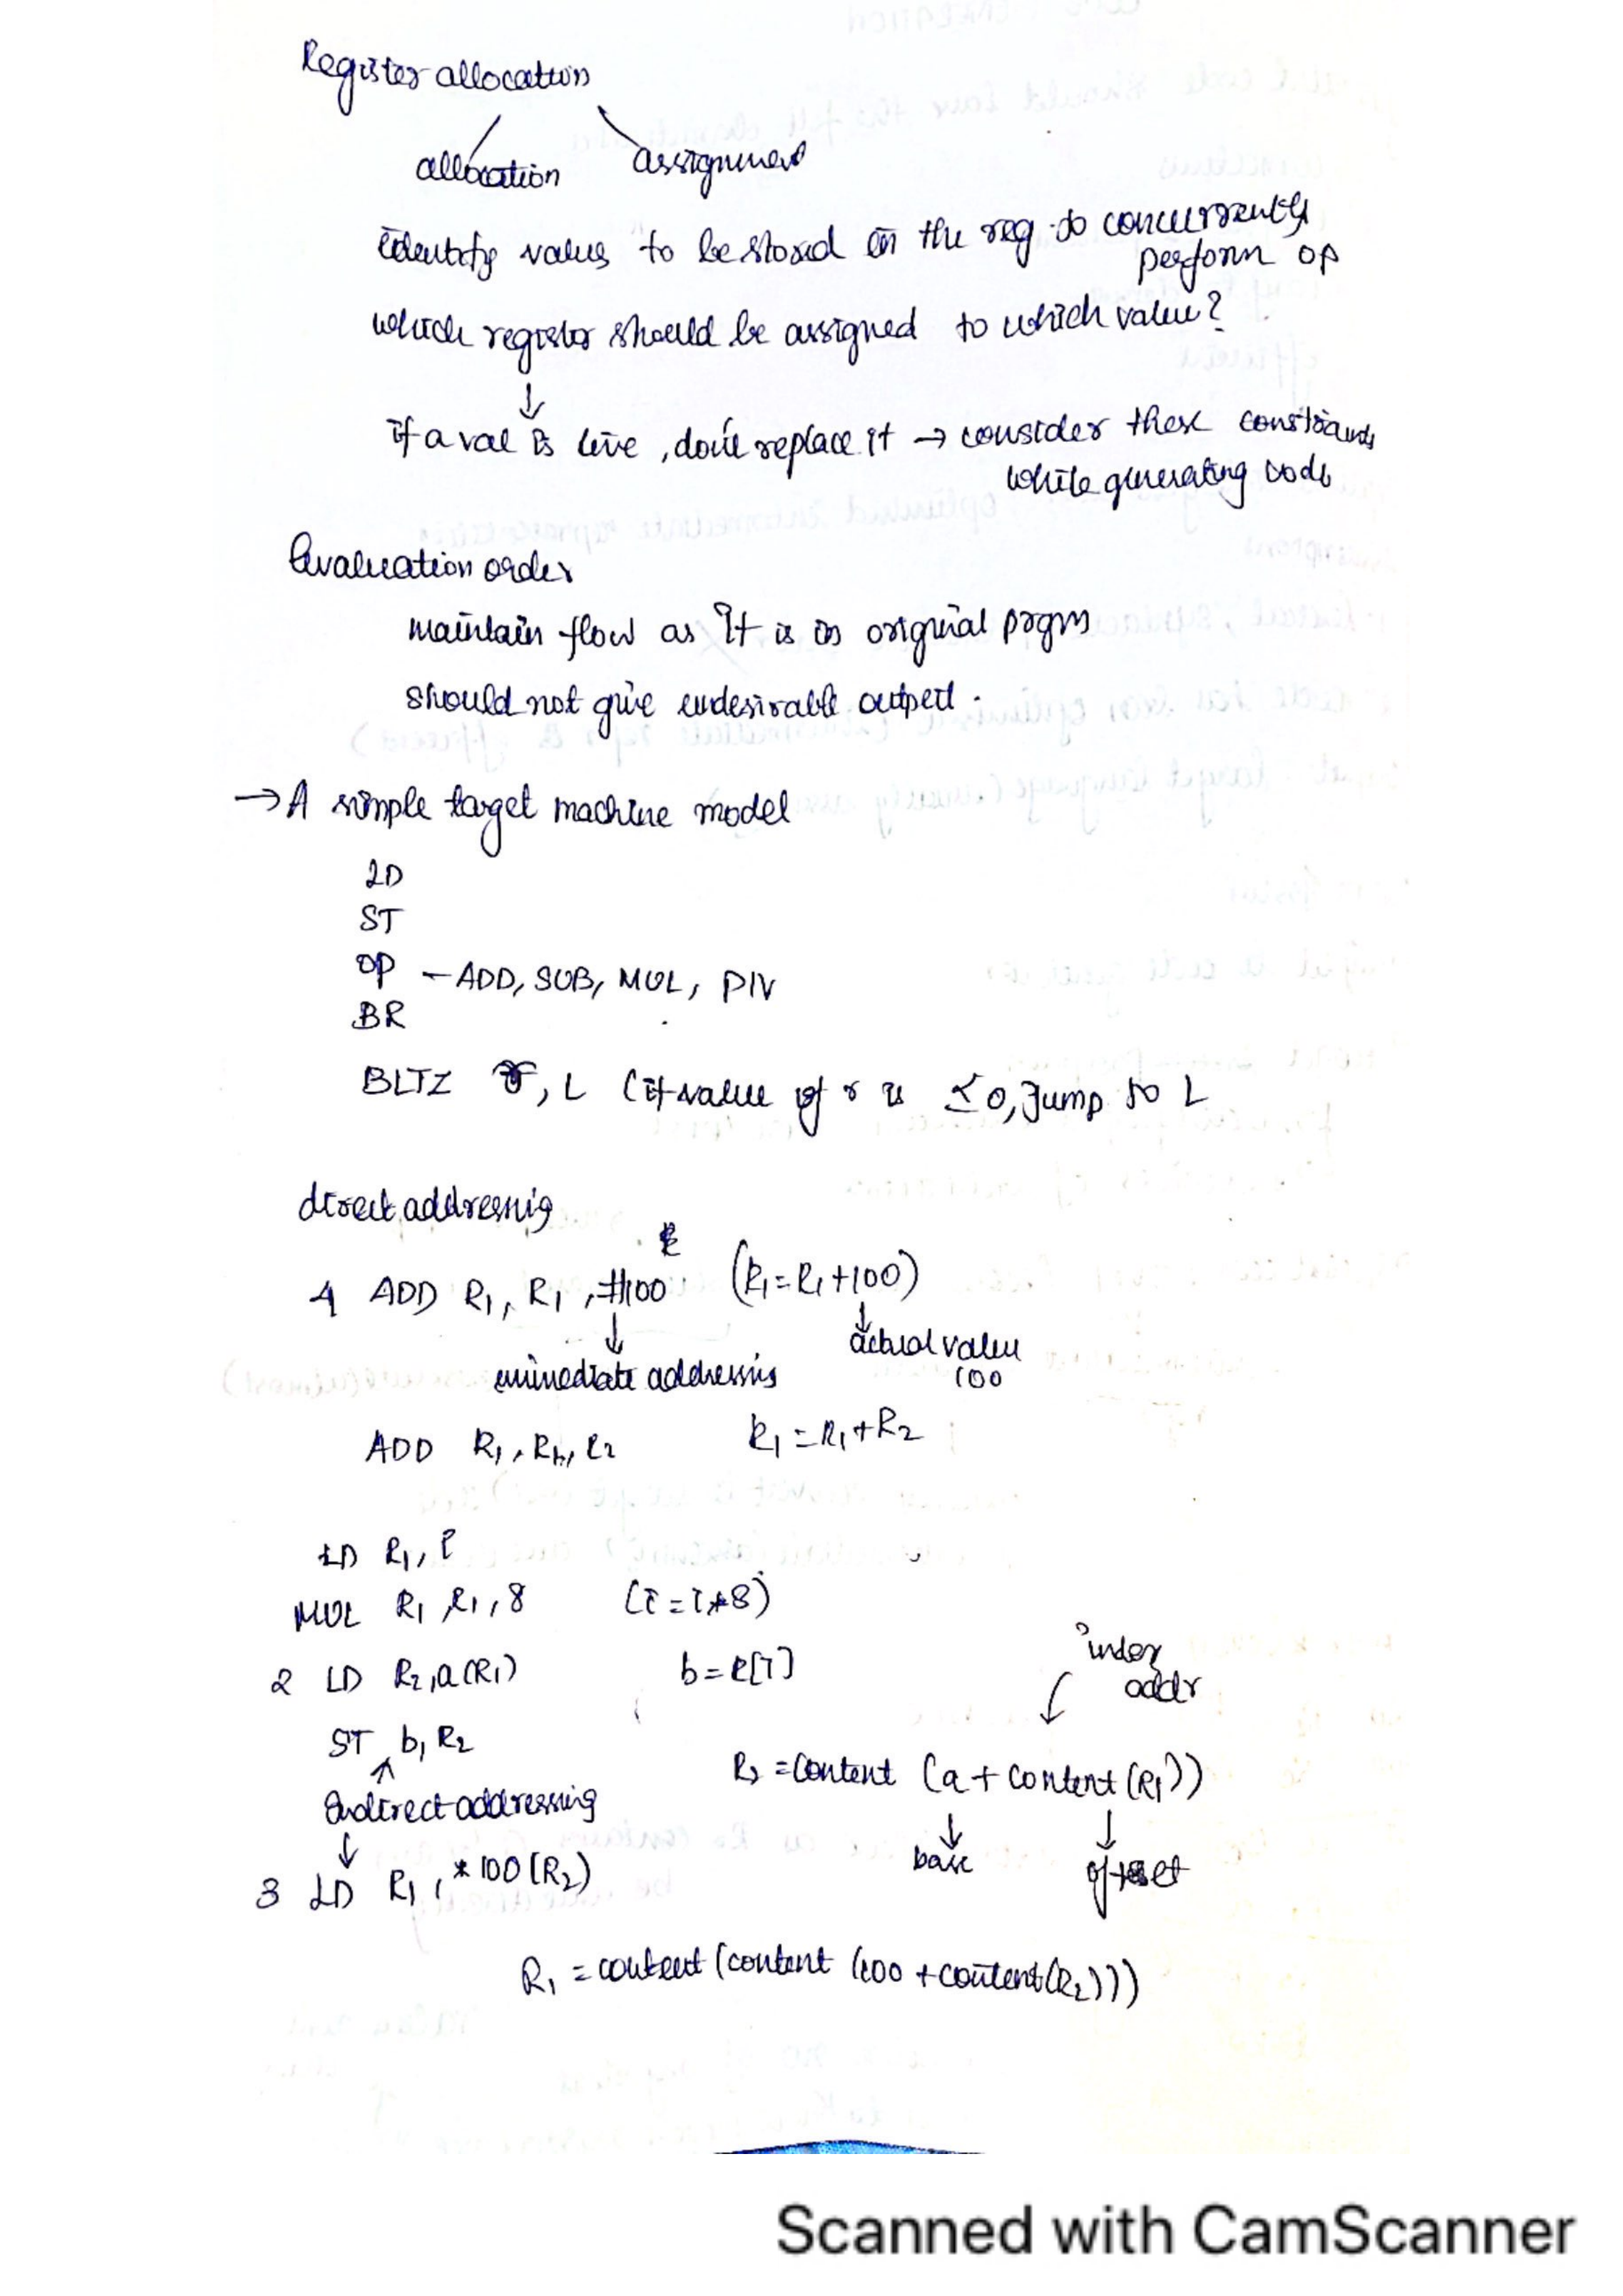 Register allocation
allocation assignment
identify values to be stored in the reg to concurrently
perform op
which register should be assigned to which value?
↓
if a val is live, don't replace it → consider these constraints
while generating code
Evaluation order
maintain flow as it is in original prgm
should not give undesirable output.
→ A simple target machine model
LD
ST
OP - ADD, SUB, MUL, DIV
BR
BLTZ r, L (if value of r is ≤ 0, Jump to L
direct addressing
4 ADD R1, R1, #100 (R1 = R1 + 100)
↓ ↓
immediate addressing actual value
100
ADD R1, R1, R2 R1 = R1 + R2
LD R1, i
MUL R1, R1, 8 (i = i * 8)
index
2 LD R2, a(R1) b = [i]
addr
ST b, R2
R2 = content (a + content (R1))
Indirect addressing
↓ ↓
base offset
3 LD R1, *100(R2)
R1 = content (content (100 + content(R2)))
Scanned with CamScanner